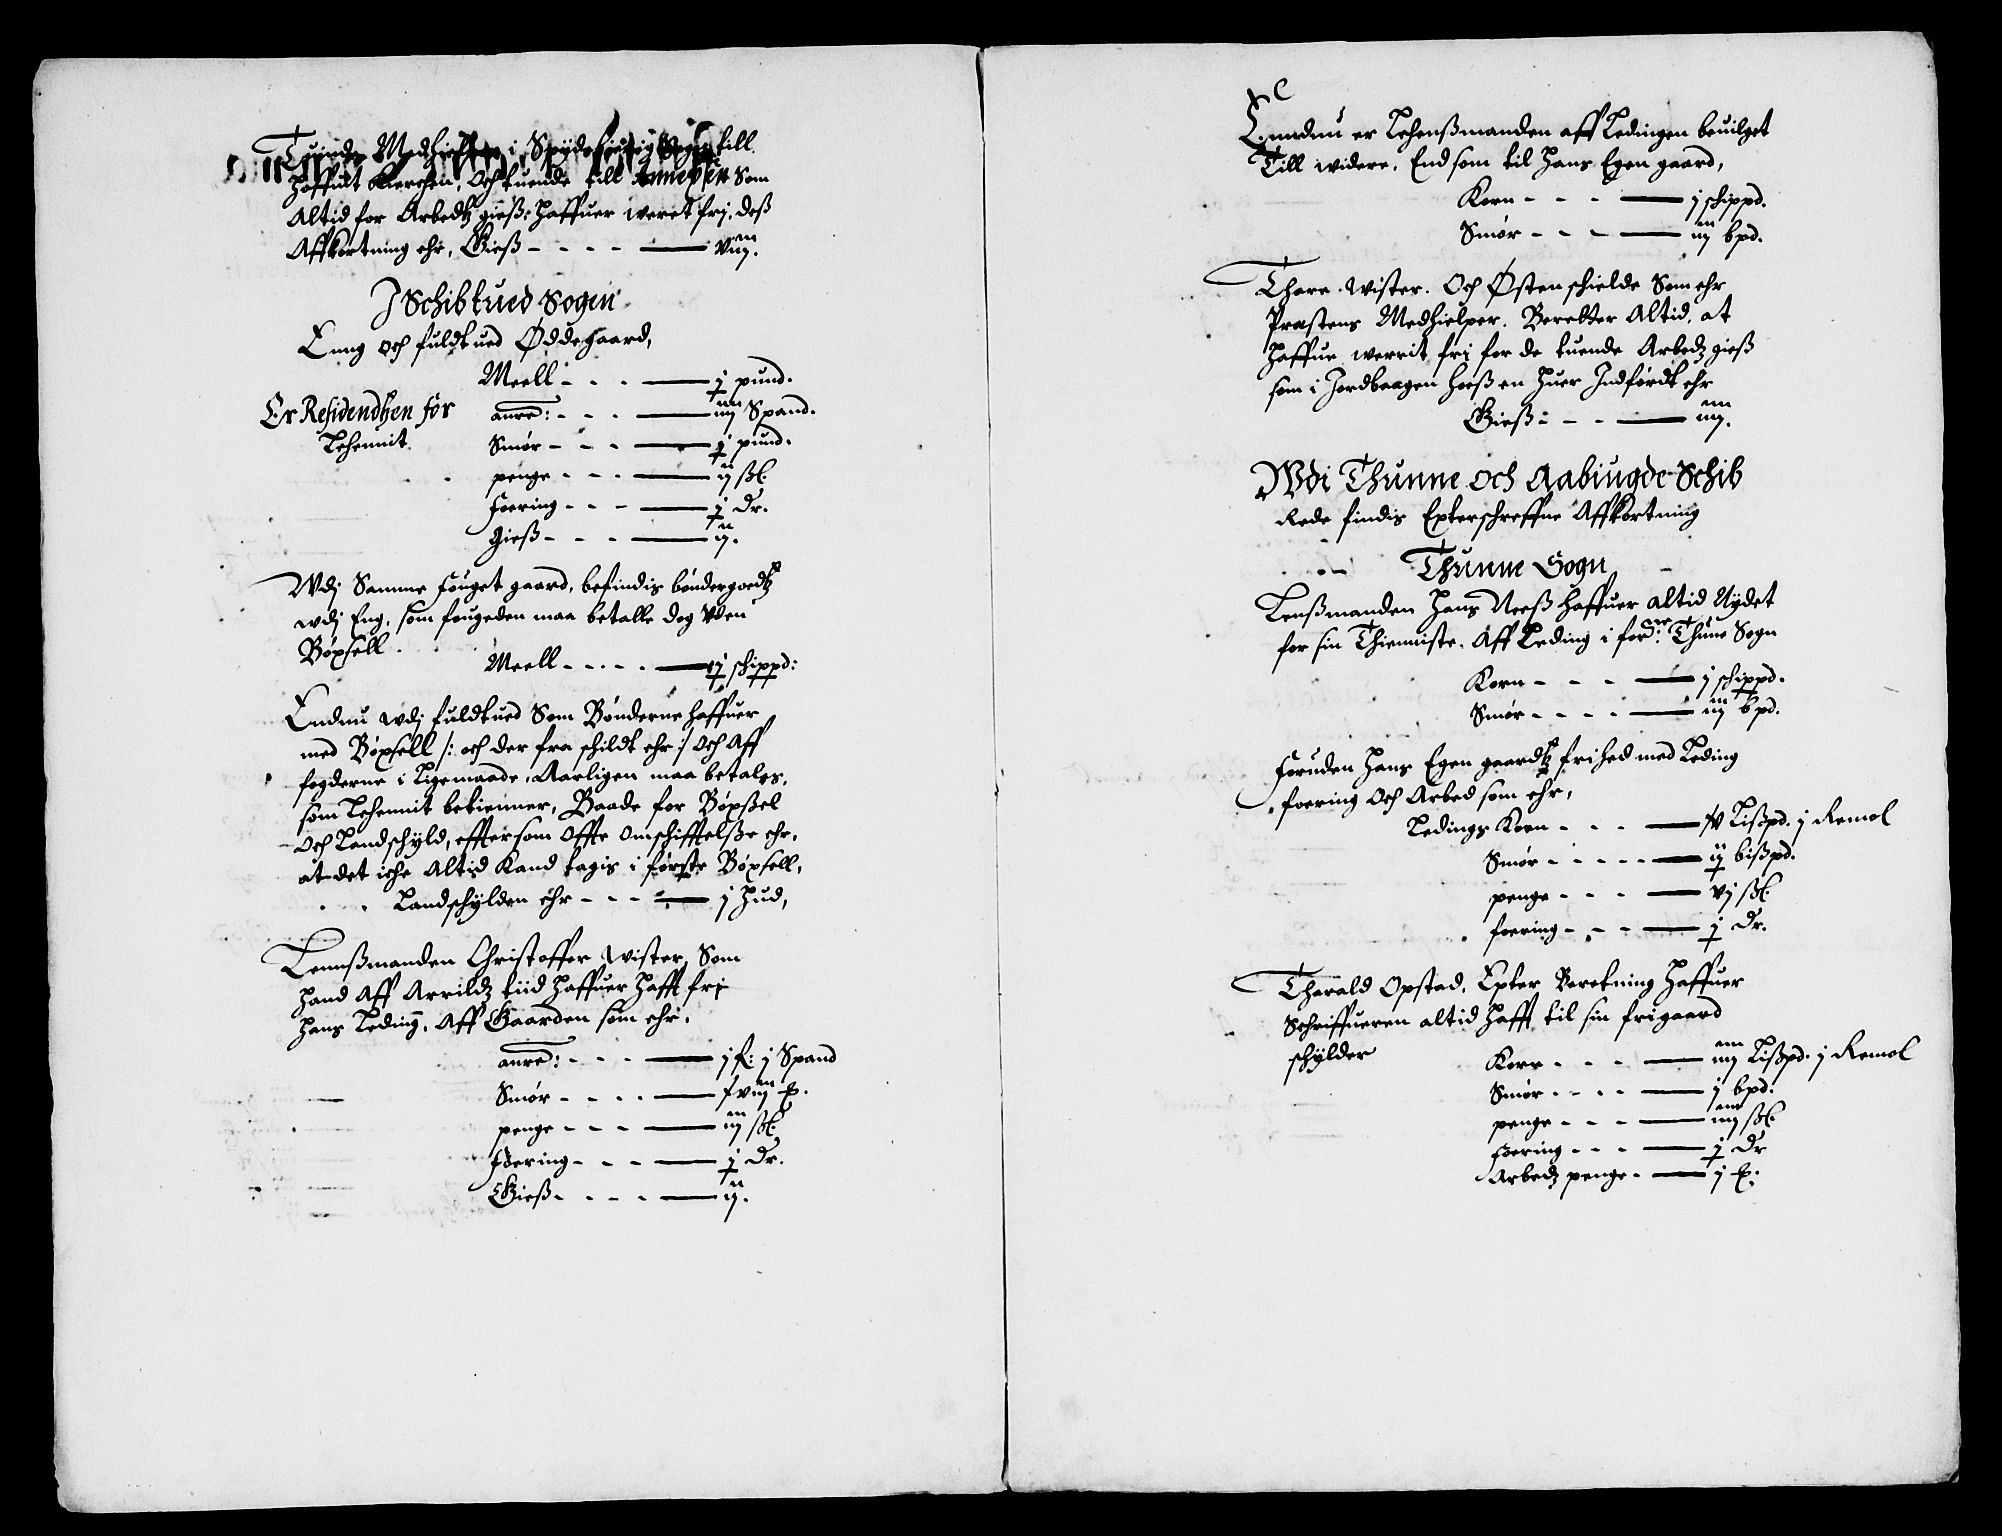 Tuinde Medhielper i Spydebierrig Sogn till
Hoffuit Kierchen, Och tuende till Annexsen Som
Altid for Arbedtz gieß: Haffuer weret frj, deß
Affkortning ehr, Gieß - - - - viij.
J Schibtued Sogen
Enng och fuldt ued Øddegaard,
Meell - - - j pund.
Er Residendtzen för
Lehennit
anre: - - - iiij Spand.
Smør - - - j pund.
penge - - - ij ßl.
Foering - - - j Dr.
Gieß - - - ij.
Wdj Samme Fouget gaard, befindis bøndergoedtz
wdj Eng, som fougeden maa betalle dog Uden
Bøxsell.
Meell - - - - ij schippd:
Endnu wdj fuldtued Som Bønderne haffuer
med Bøxsell /: och der fra schildt ehr :/ Och Aff
fogderne i Ligemaade, Aarligen maa betales,
som Lehennit bekienner, Baade for Bøxsel
Och Landschyld, effter som Offte Omschifftelße ehr,
at det iche Altid Kand tagis i første Bøxsell,
Landschylden ehr - - - j Hud,
Lennßmanden Christoffer Wister, Som
Hand Aff Arrildz tiid Haffuer Hafft frj
Hans Leding, Aff Gaarden som ehr,
anre: - - - j f: j Spand
Smør - - - -
penge - - - iij ßl.
Foering - - - j Dr.
Gieß - - - - ij.
Enndnu er Lehenßmanden aff Ledingen beuilget
Till widere, End som til Hans Egen gaard,
Korn - - - j schippd.
Smør - - - iij bpd.
Thore Wister. Och Østen schielde Som ehr
Prästens Medhielper. Beretter Altid, at
Haffue werrit frj for de tuende Arbedz gieß
som i Jordboegen hoeß en Huer Indførdt ehr
Gieß - - - iiij.
Wdi Thunne och Aabiugde Schib
Rede findis Epterschreffne Affkortning
Thunne Sogn
Lenßmanden Hans Neeß haffuer altid Nydet
for sin Thienniste, Aff Leding i ford:ne Thune Sogn
Korn - - - j schippd.
Smør - - - - iij bpd.
Foruden Hans Egen gaardtz frihed med Leding
foering Och Arbed som ehr,
Ledings Korn - - - xv Lißpd. j Remol
Smør - - - - - ij bißpd.
penge - - - - vj ßl.
foering - - - j Dr.
Tharald Opstad, Epter Beretning Haffuer
Schriffueren altid Hafft til sin frigaard
schylder
Korn - - - - iiij Lißpd. j Remol
Smør - - - - j bpd.
penge - - - - iiij ßl.
foering - - - j Dr
Arbedz penge - j